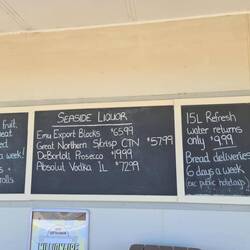 fruit,
eat
ed
a week!
s
rolls
SEASIDE LIQUOR
Emu Export Blocks $65.99
Great Northern S/crisp CTN $57.99
DeBortoli Prosecco $19.99
Absolut Vodka 1L $72.99
15L Refresh
water returns
only $9.99
Bread deliveries
6 days a week
exc public holidays
MILLIONAIRE